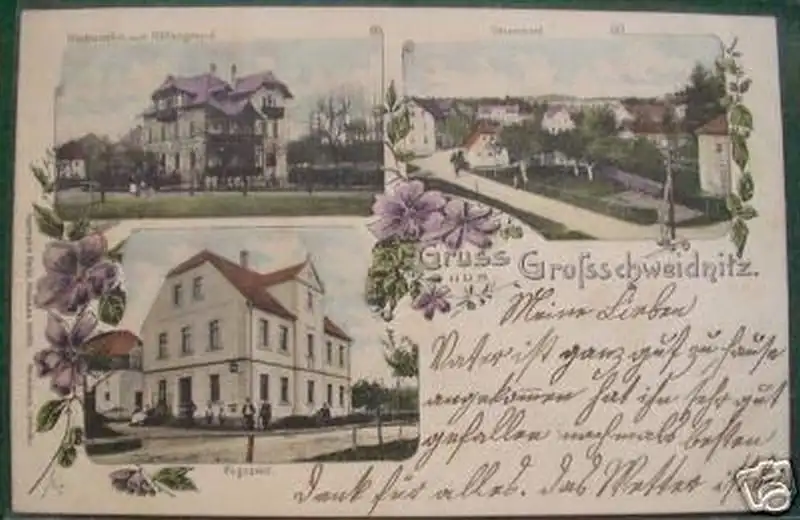 Gruss
aus
Grofsschweidnitz.
Meine Lieben
Vater ist ganz gut zu hause
angekommen hat ihn sehr gut
gefallen nochmals besten
Dank für alles. das Wetter ist